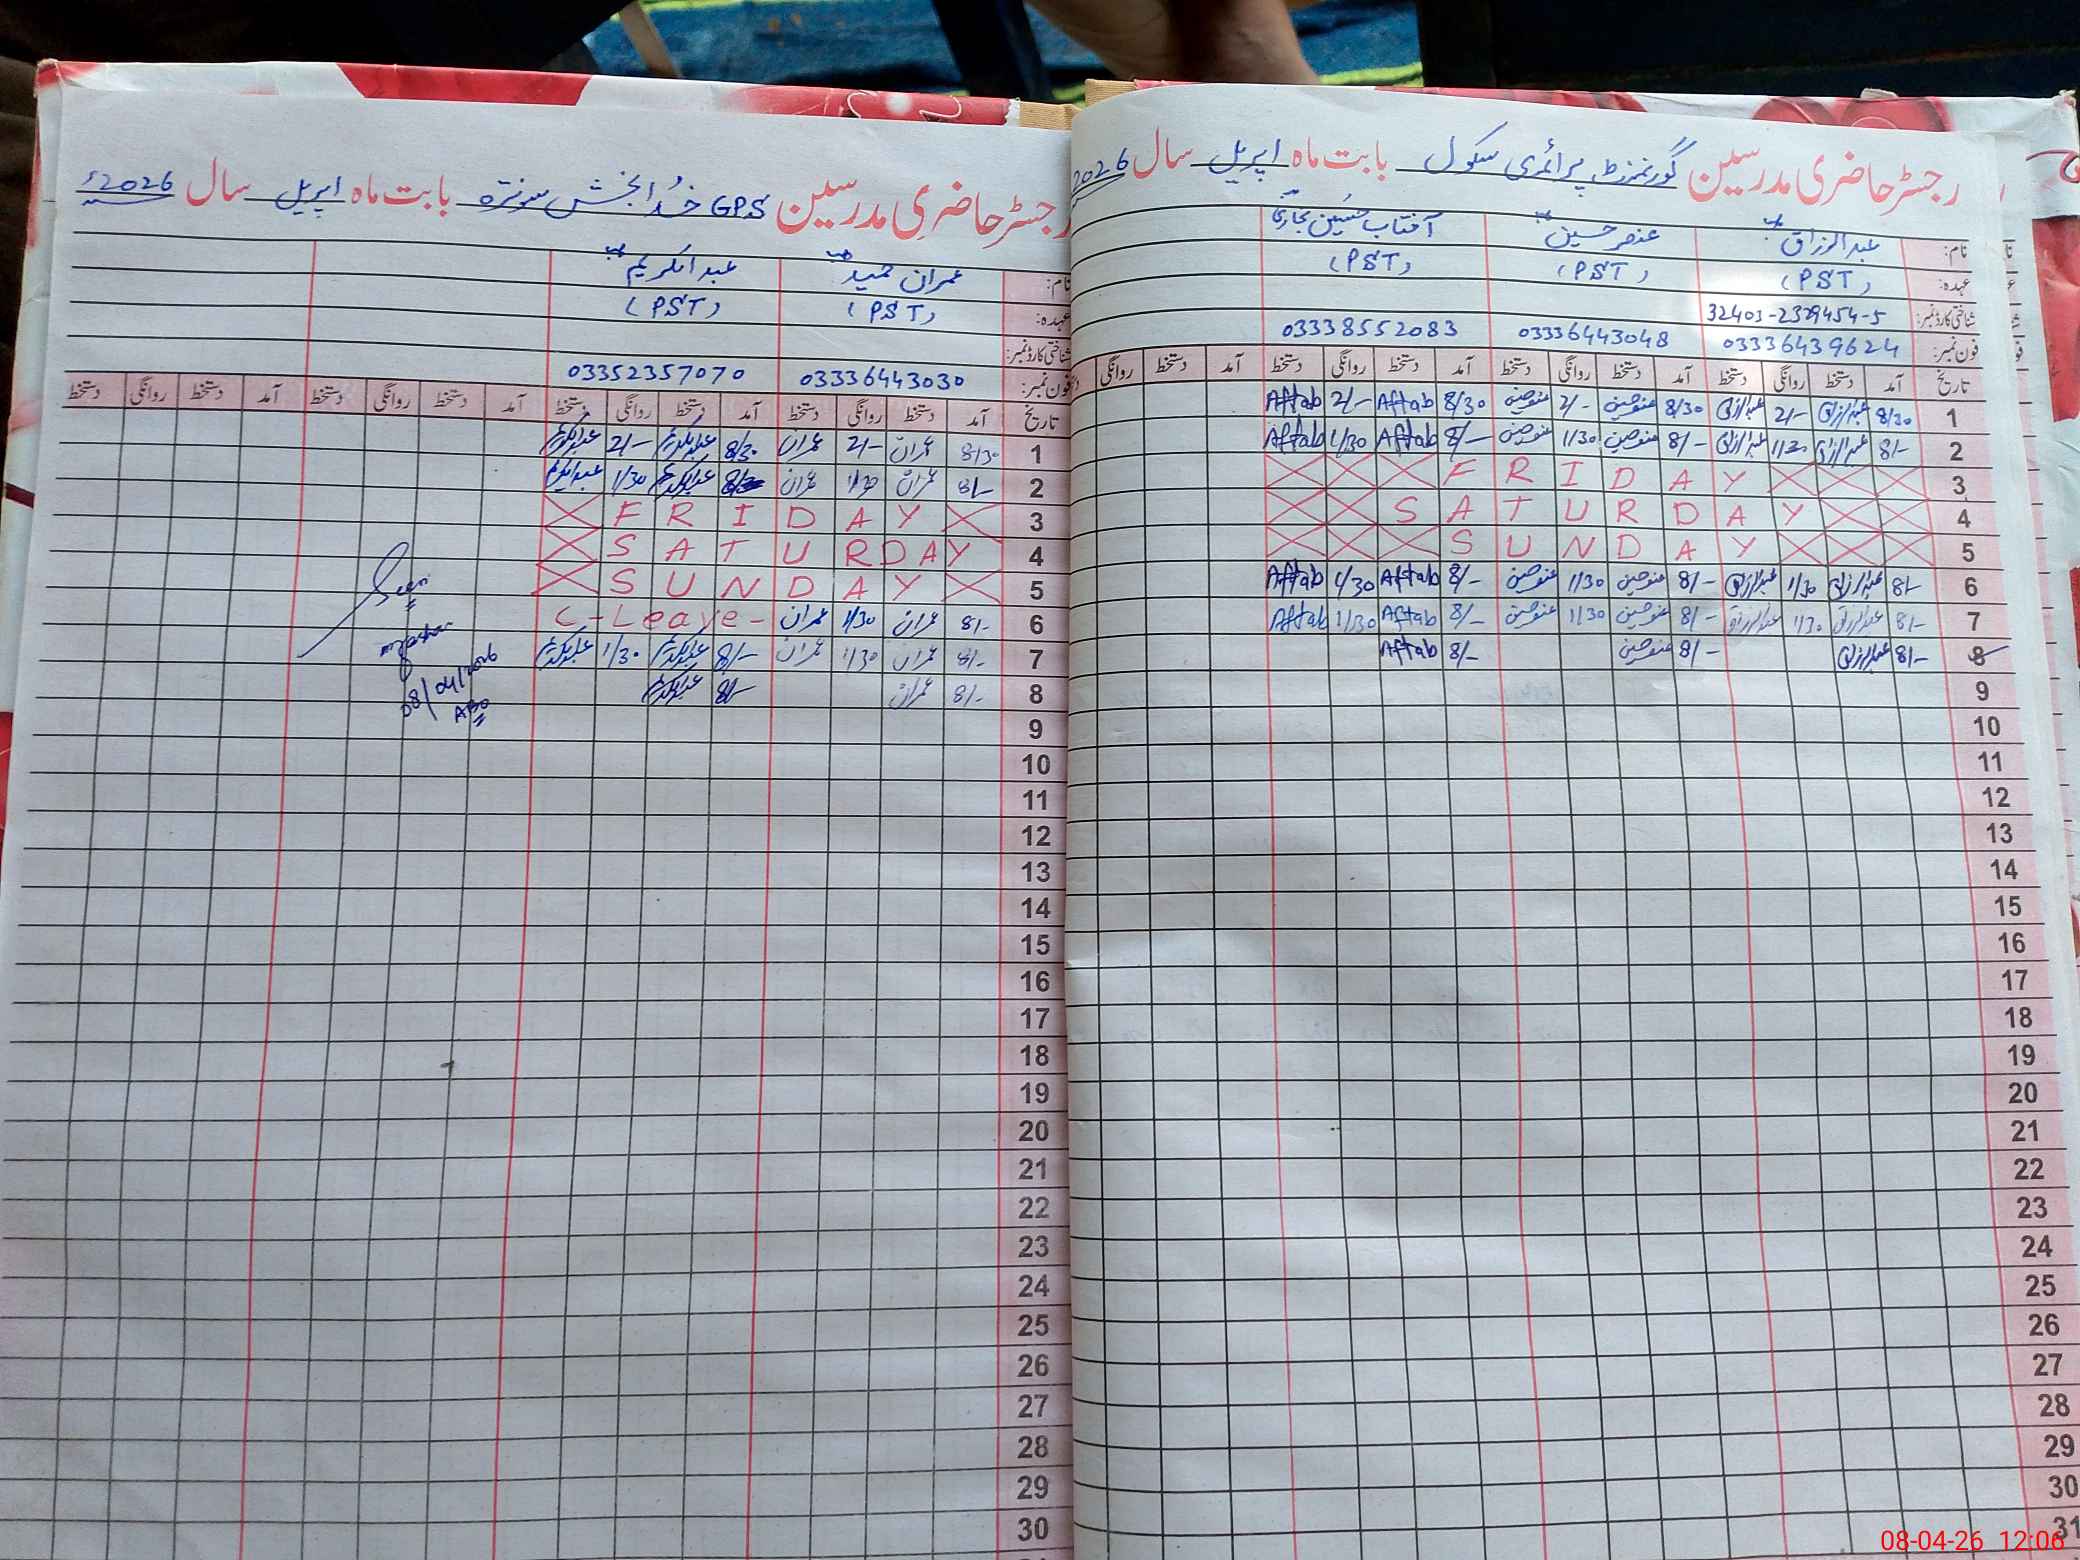 رجسٹر حاضری مدرسین گورنمنٹ پرائمری سکول بابت ماہ اپریل سال 2026
نام: عبدالرزاق عنصر حسین آفتاب حسین بخاری
عہدہ: (PST) (PST) (PST)
شناختی کارڈ نمبر: 32403-2329454-5
فون نمبر: 03336439624 03336443048 03338552083
تاریخ آمد دستخط روانگی دستخط آمد دستخط روانگی دستخط آمد دستخط روانگی دستخط آمد دستخط روانگی
1 8/30 عبدالرزاق 2/- عبدالرزاق 8/30 عنصر حسین 2/- عنصر حسین 8/30 Aftab 2/- Aftab
2 8/- عبدالرزاق 1/30 عبدالرزاق 8/- عنصر حسین 1/30 عنصر حسین 8/- Aftab 1/30 Aftab
3 FRIDAY
4 SATURDAY
5 SUNDAY
6 8/- عبدالرزاق 1/30 عبدالرزاق 8/- عنصر حسین 1/30 عنصر حسین 8/- Aftab 1/30 Aftab
7 8/- عبدالرزاق 1/30 عبدالرزاق 8/- عنصر حسین 1/30 عنصر حسین 8/- Aftab 1/30 Aftab
8 8/- عبدالرزاق 8/- عنصر حسین 8/- Aftab
9
10
11
12
13
14
15
16
17
18
19
20
21
22
23
24
25
26
27
28
29
30
31
رجسٹر حاضری مدرسین GPS خدا بخش سونترہ بابت ماہ اپریل سال 2026ء
نام: عمران حمید عبدالکریم
عہدہ: (PST) (PST)
شناختی کارڈ نمبر:
فون نمبر: 03336443030 03352357070
تاریخ آمد دستخط روانگی دستخط آمد دستخط روانگی دستخط آمد دستخط روانگی دستخط آمد دستخط روانگی دستخط
1 8/30 عمران 2/- عمران 8/30 عبدالکریم 2/- عبدالکریم
2 8/- عمران 1/30 عمران عبدالکریم 1/30 عبدالکریم
3 FRIDAY
4 SATURDAY
5 SUNDAY
6 8/- عمران 1/30 عمران C-Leave-
7 8/- عمران 1/30 عمران 8/- عبدالکریم 1/30 عبدالکریم
8 8/- عمران 8/- عبدالکریم
9
10
11
12
13
14
15
16
17
18
19
20
21
22
23
24
25
26
27
28
29
30
Seen
08/04/2026
08-04-26 12:06